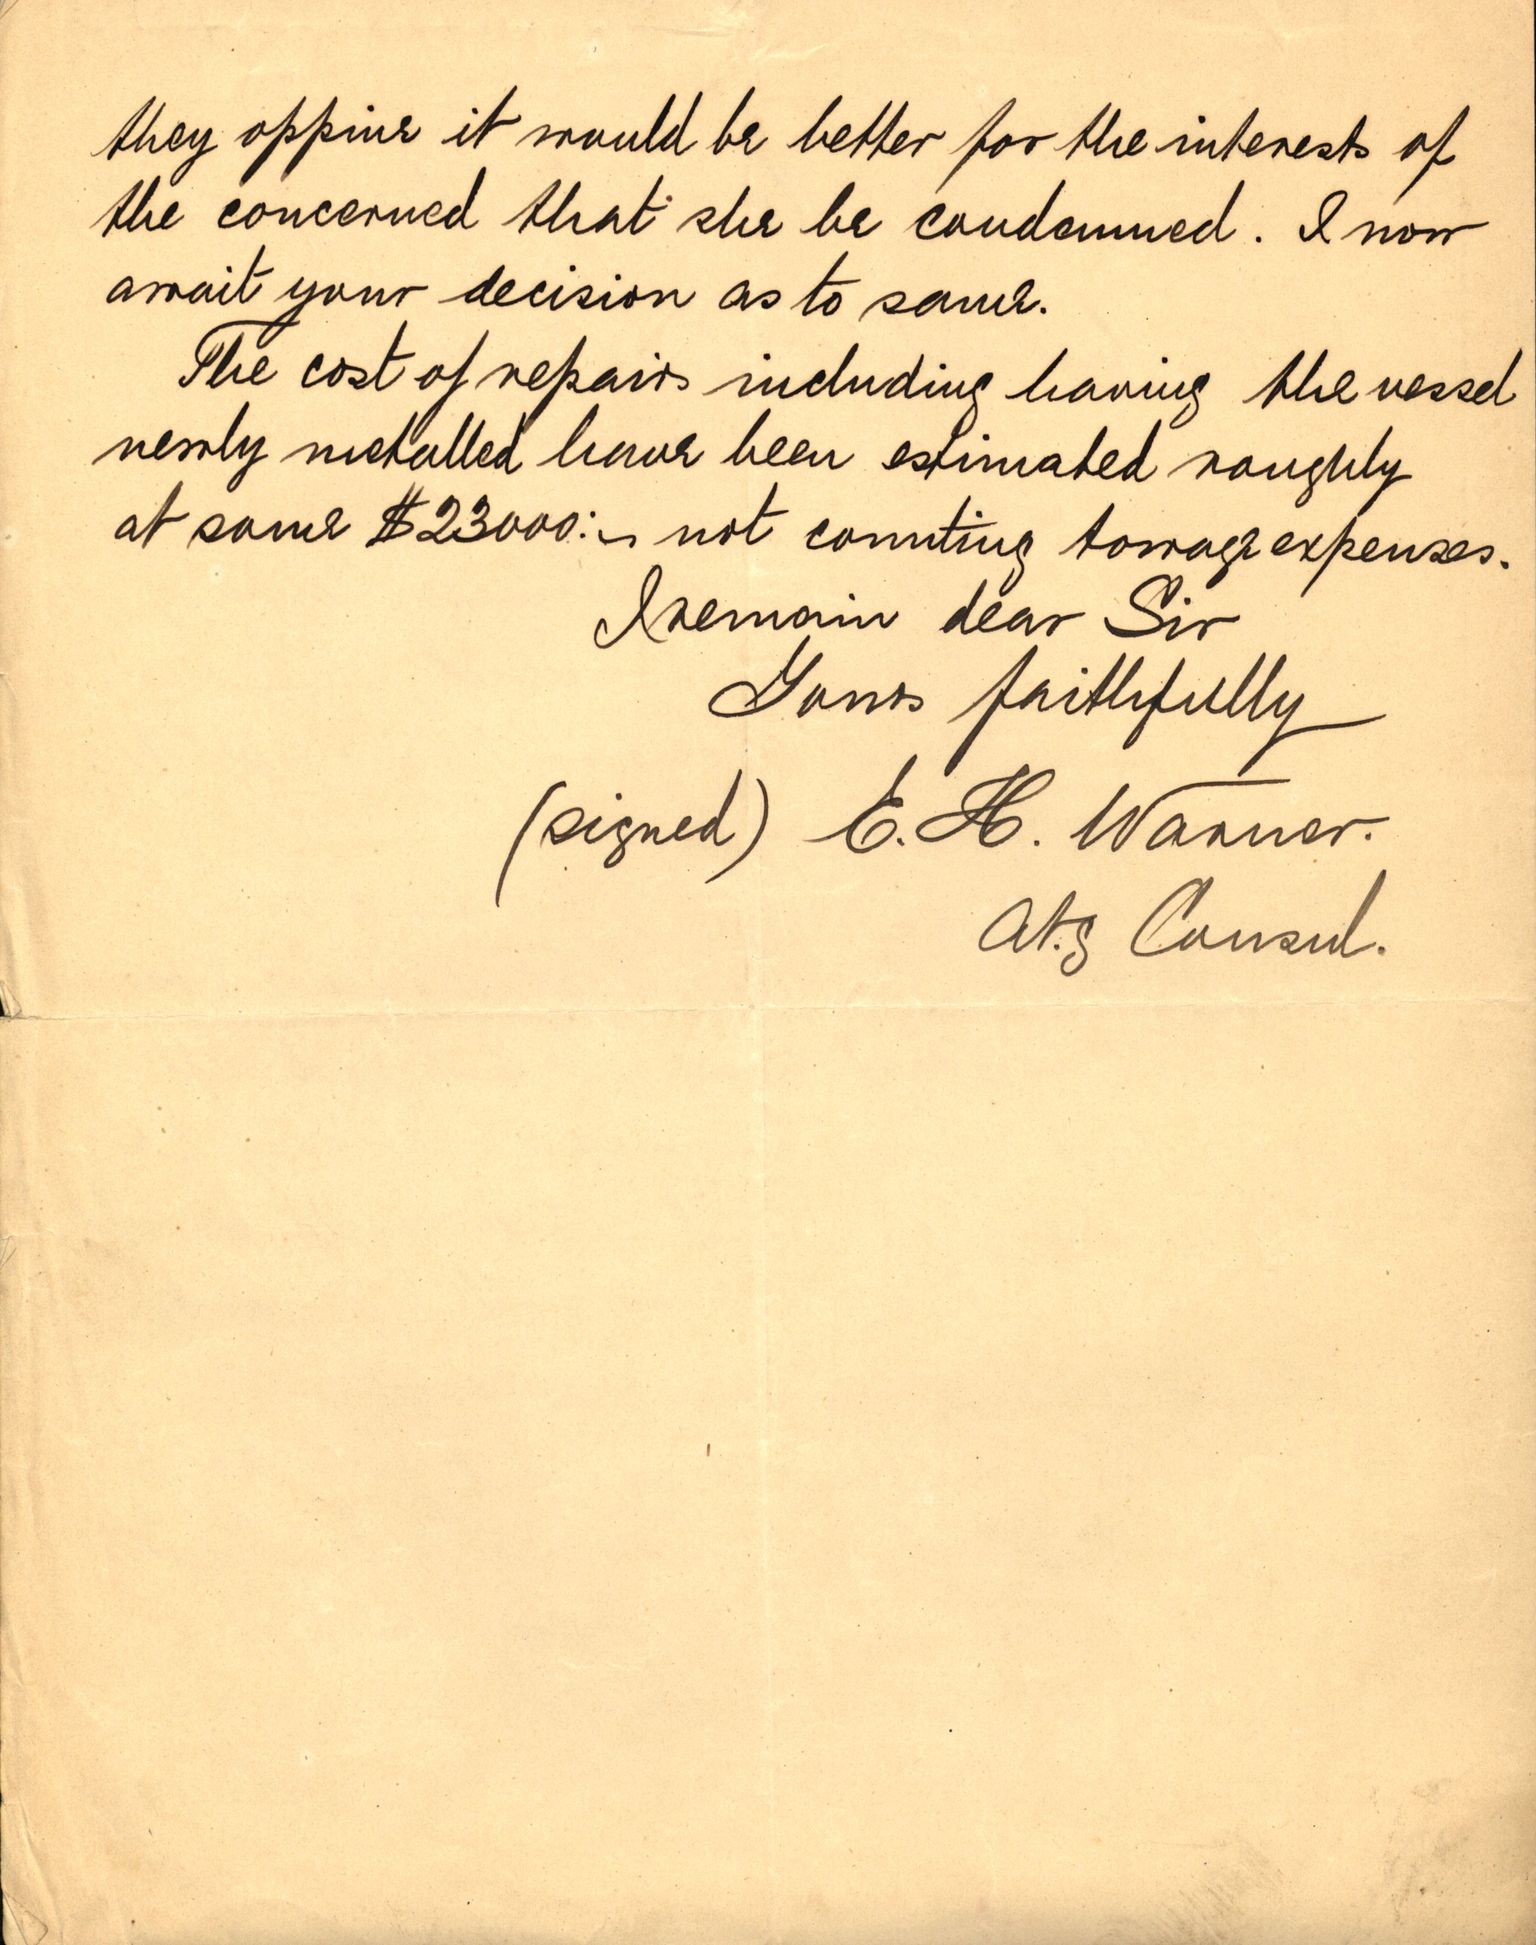 they oppine it would be better for the interests of
the concerned that she be condemned. I now
await your decision as to same.
The cost of repairs including having the vessel
newly metalled have been estimated roughly
at some $23000:~ not counting towage expenses.
I remain dear Sir
Yours faithfully
(signed) E. H. Warner.
At.g Consul.